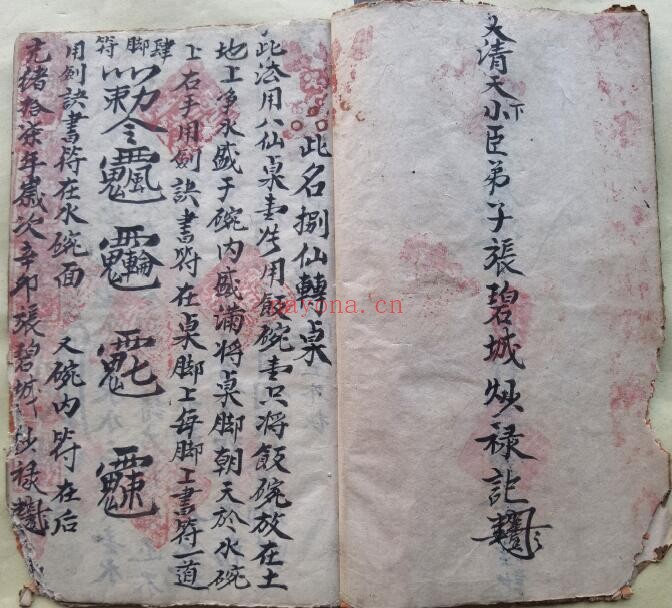 大清天下小臣弟子張碧城炒禄記
此名捌仙轉桌
此法用八仙桌壹張用飯碗壹只将飯碗放在土
地上净水盛于碗内盛滿将桌脚朝天於水碗
上右手用劍訣書符在桌脚上每脚上書符一道
肆脚符
勅令
用劍訣書符在水碗面 又碗内符在后
光绪拾柒年歲次辛卯張碧城炒禄
ayona.cn